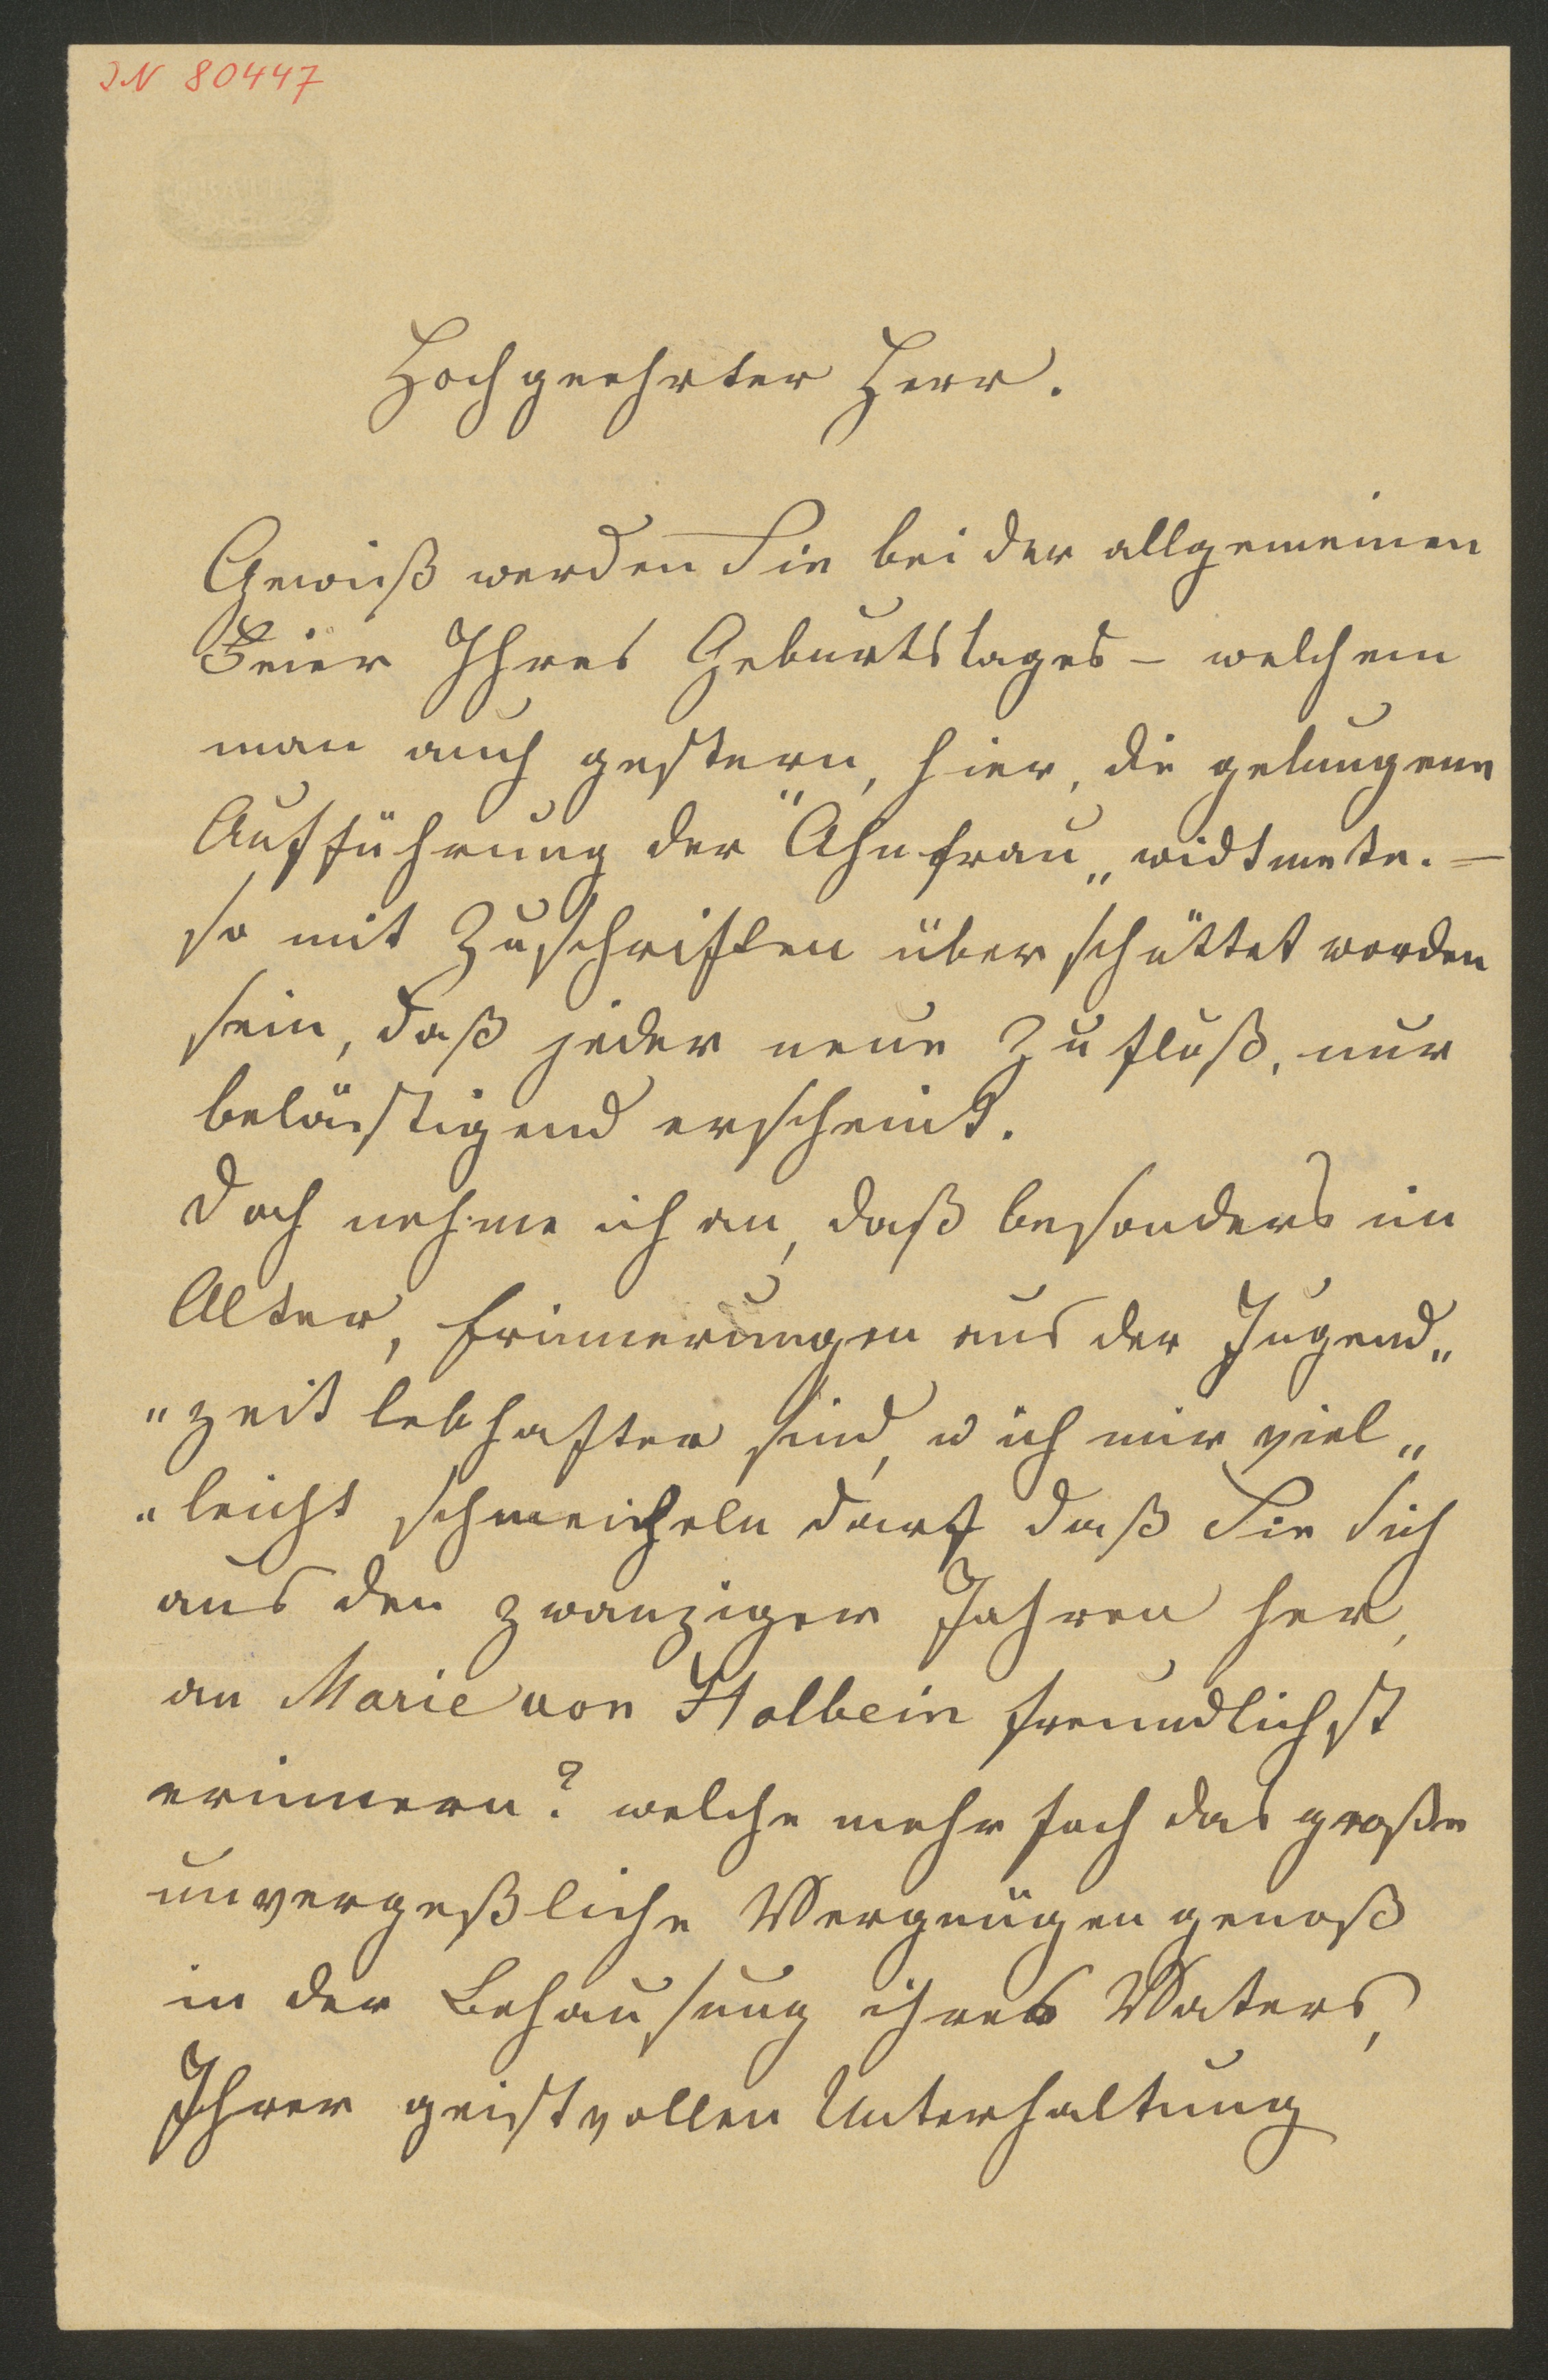 JN 80447
Hochgeehrter Herr.
Gewiß werden Sie bei der allgemeinen
Feier Ihres Geburtstages – welchem
man auch gestern, hier, die gelungene
Aufführung der "Ahnfrau„ widtmete. –
so mit Zuschriften überschüttet worden
sein, daß jeder neue Zufluß, nur
belästigend erscheint.
Doch nehme ich an, daß besonders im
Alter, Erinnerungen aus der Jugend„
"zeit lebhafter sind, u ich mir viel„
"leicht schmeicheln darf daß Sie Sich
aus den zwanziger Jahren her,
an Marie von Holbein freundlichst
erinnern? welche mehrfach das große
unvergeßliche Vergnügen genoß
in der Behausung ihres Vaters,
Ihrer geistvollen Unterhaltung